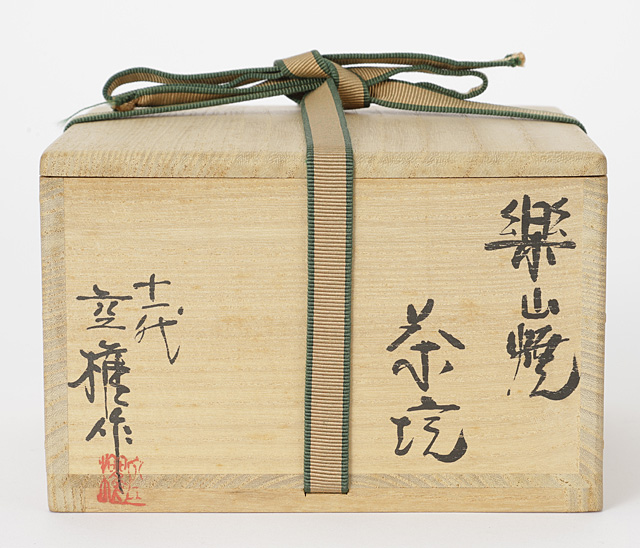 樂山焼
茶垸
十一代
空権作